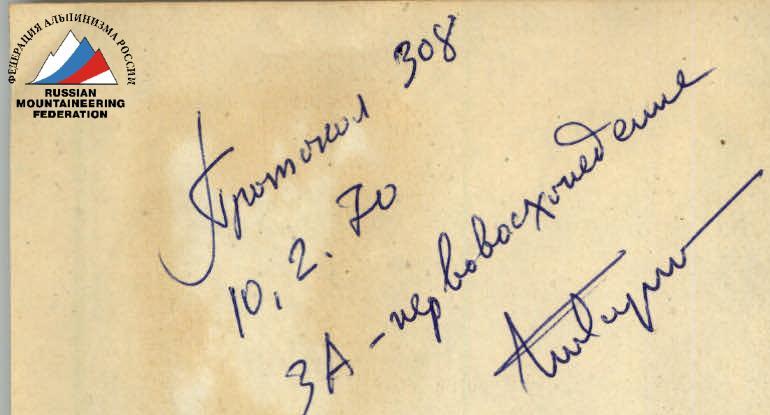 ФЕДЕРАЦИЯ АЛЬПИНИЗМА РОССИИ
RUSSIAN
MOUNTAINEERING
FEDERATION
Протокол 308
10.2.70
3А - первовосхождение